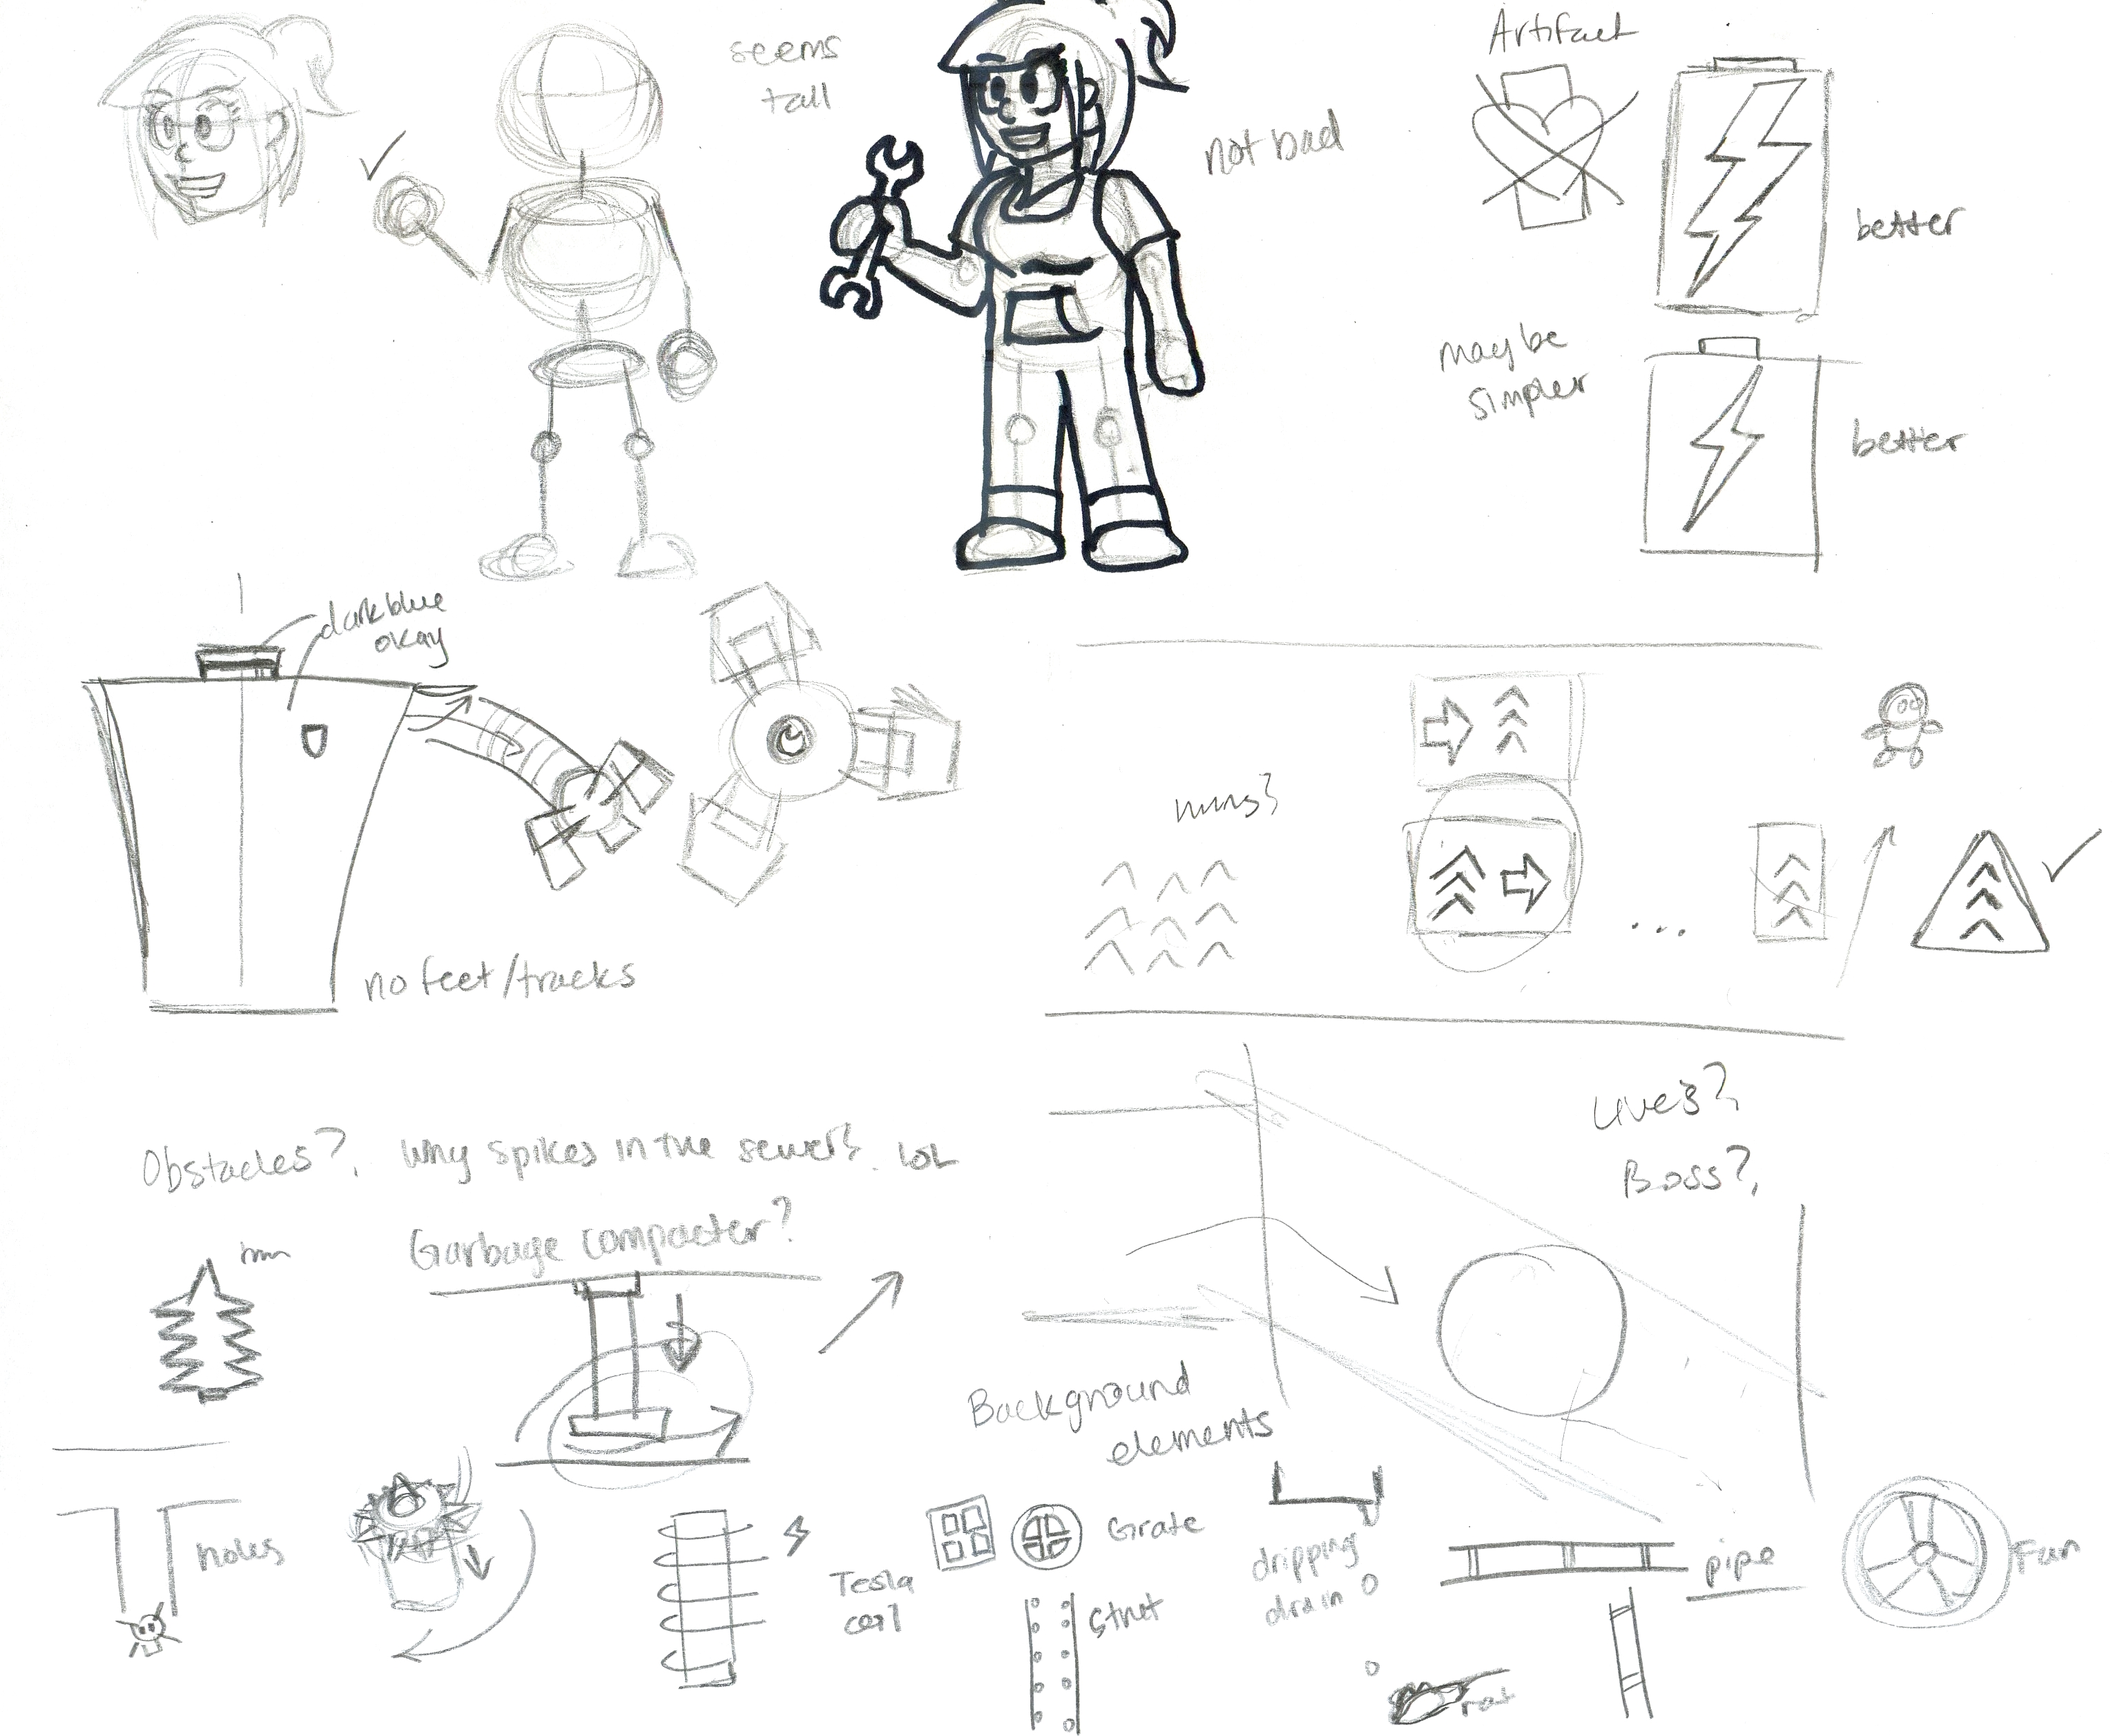 seems
tall
not bad
Artifact
better
maybe
simpler
better
dark blue
okay
no feet/tracks
Lives?
Boss?
Obstacles?. Why spikes in the sewer?. LOL
hmm
Garbage compacter?
Background
elements
holes
Tesla
coil
Grate
Strut
dripping
drain
pipe
Fan
rat